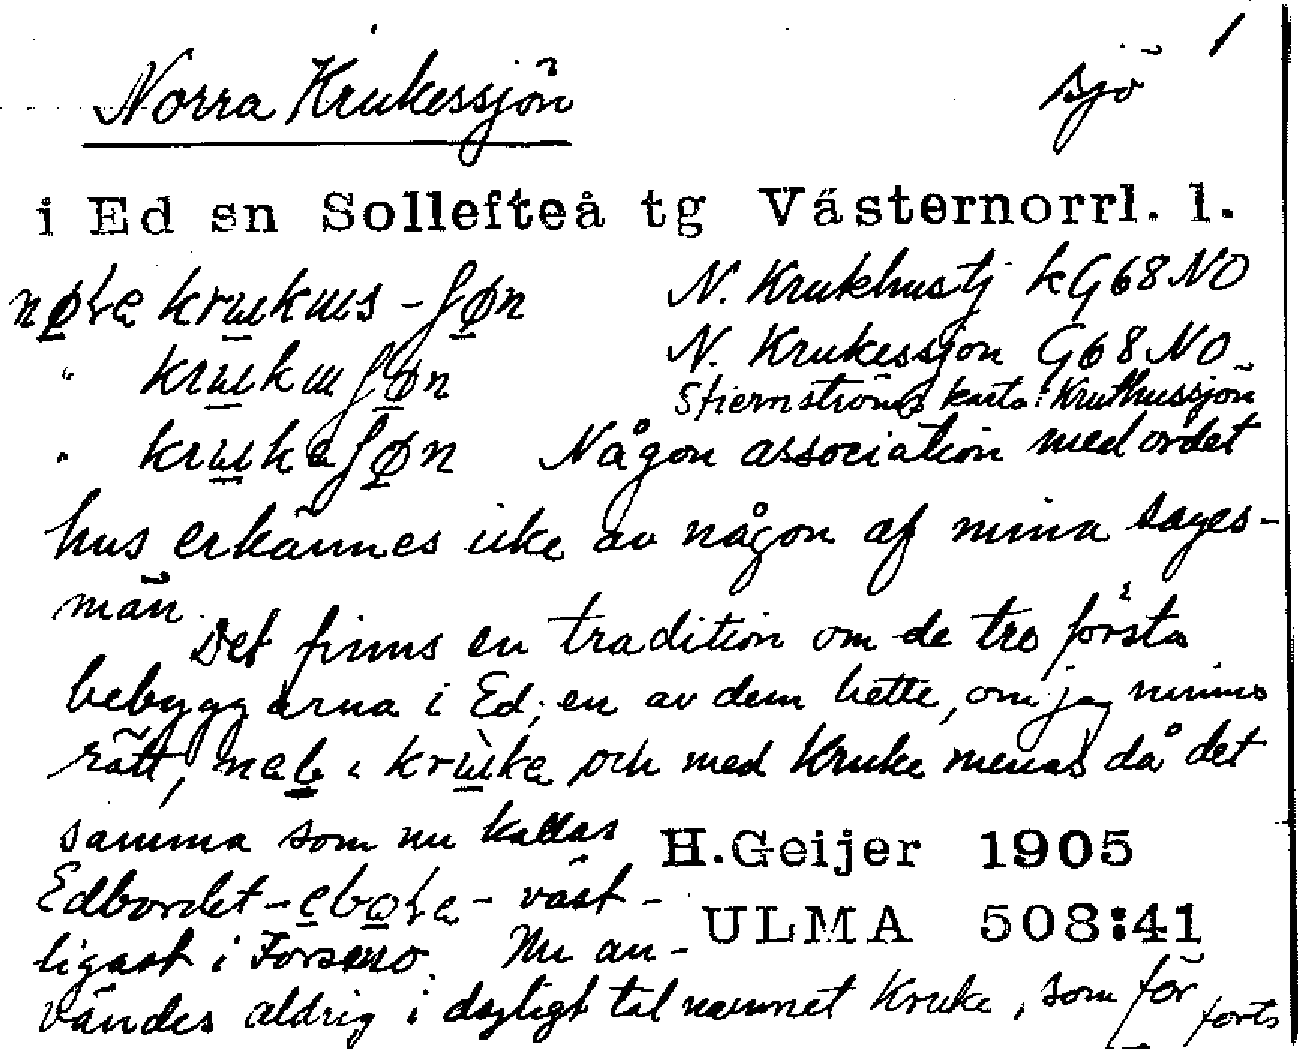 1
Norra Krukessjön sjö
i Ed sn Sollefteå tg Västernorrl. l.
N. Krukhustj kG68NO
N. Krukessjön G68NO
Stiernströms karta: Kruthussjön
Någon association med ordet
hus erkännes icke av någon af mina sages-
män.
Det finns en tradition om de tre första
bebyggarna i Ed; en av dem hette, om jag minns
rätt, i och med Kruke menas då det
samma som nu kallas
Edbordet - - väst-
ligast i Forsmo. Nu an-
vändes aldrig i dagligt tal namnet Kruke, som för
forts
H.Geijer 1905
ULMA 508:41